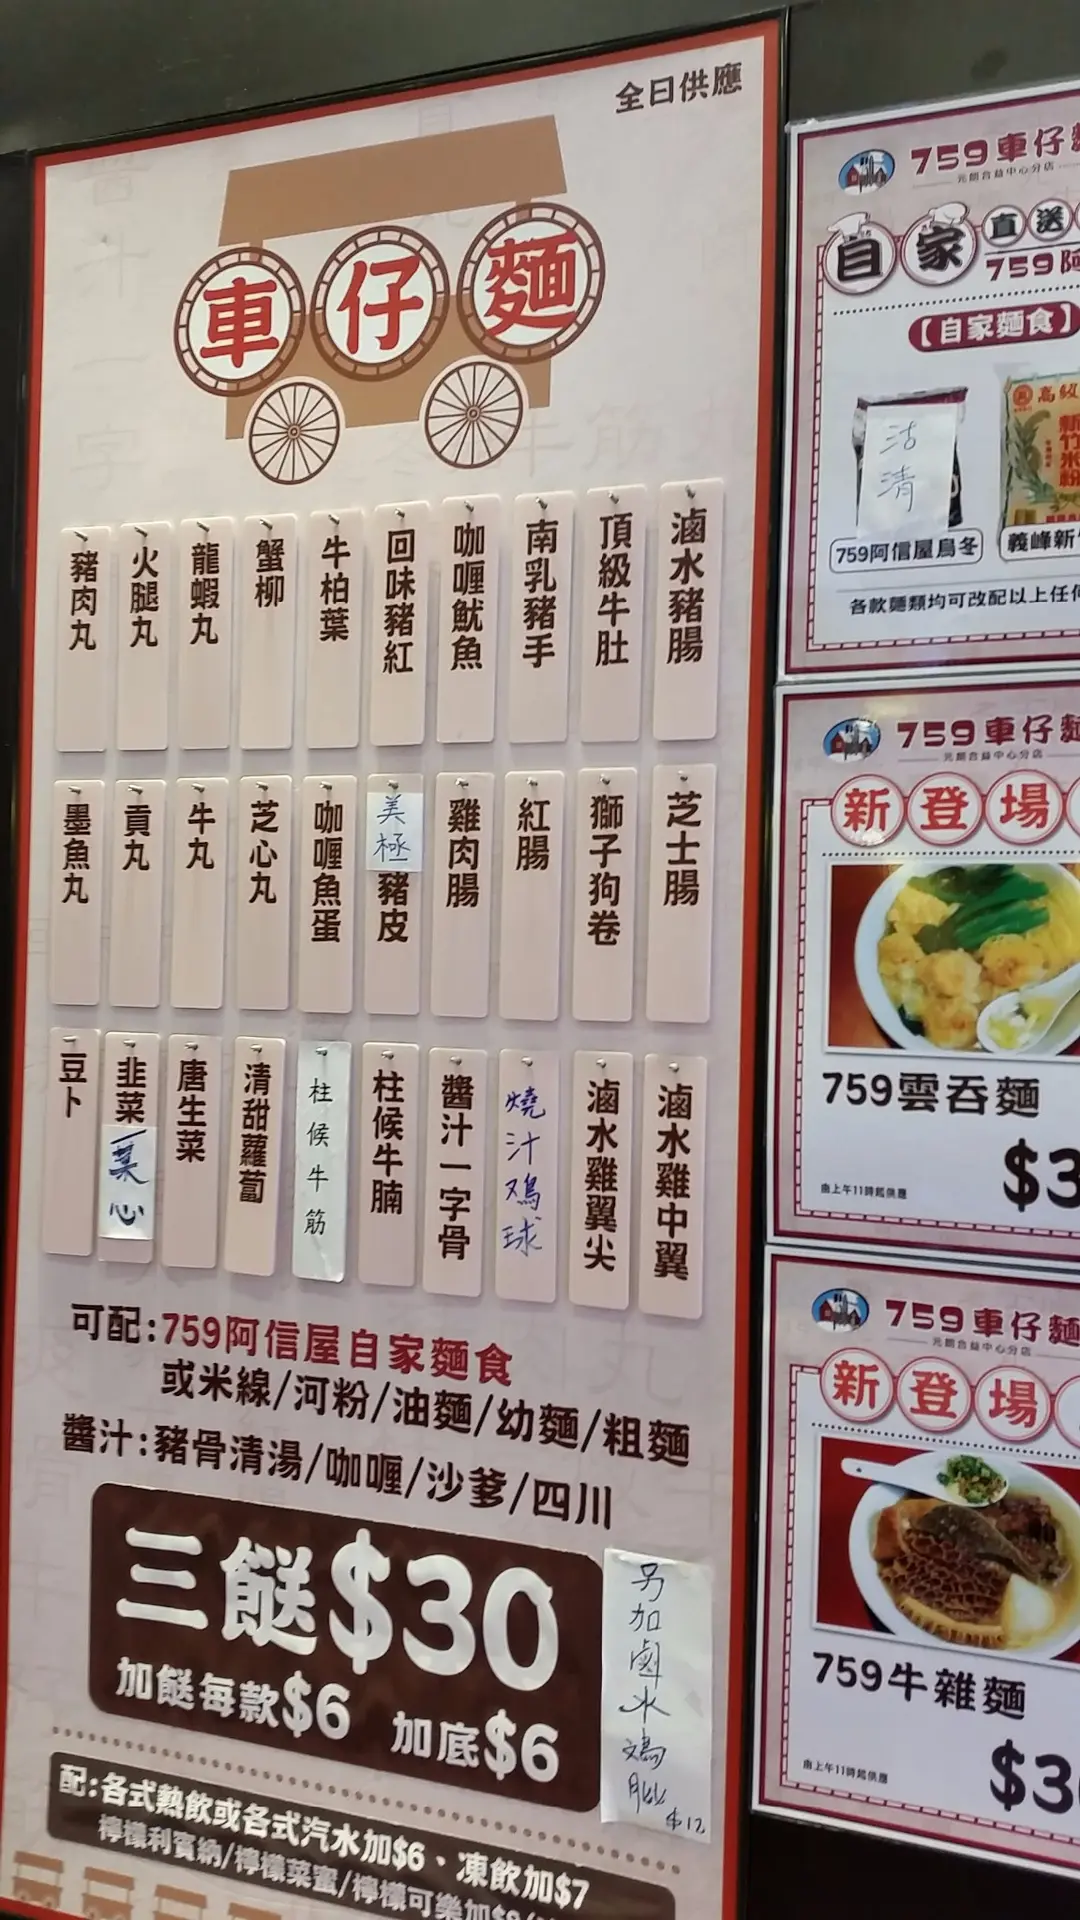 全日供應
車仔麵
滷水豬腸
頂級牛肚
南乳豬手
咖喱魷魚
回味豬紅
牛柏葉
蟹柳
龍蝦丸
火腿丸
豬肉丸
芝士腸
獅子狗卷
紅腸
雞肉腸
美極豬皮
咖喱魚蛋
芝心丸
牛丸
貢丸
墨魚丸
滷水雞中翼
滷水雞翼尖
燒汁鸡球
醬汁一字骨
柱候牛腩
柱候牛筋
清甜蘿蔔
唐生菜
韭菜/菜心
豆卜
可配:759阿信屋自家麵食
或米線/河粉/油麵/幼麵/粗麵
醬汁:豬骨清湯/咖喱/沙爹/四川
三餸$30
加餸每款$6 加底$6
另加鹵水鸡
$12
配:各式熱飲或各式汽水加$6、凍飲加$7
檸檬利賓納/檸檬菜蜜/檸檬可樂加$8
759車仔麵
元朗合益中心分店
自家直送
759阿
【自家麵食】
沽清
高級
新竹米粉
759阿信屋烏冬
義峰新
各款麵類均可改配以上任何
759車仔麵
元朗合益中心分店
新登場
759雲吞麵
$3
由上午11時起供應
759車仔麵
元朗合益中心分店
新登場
759牛雜麵
$3
由上午11時起供應